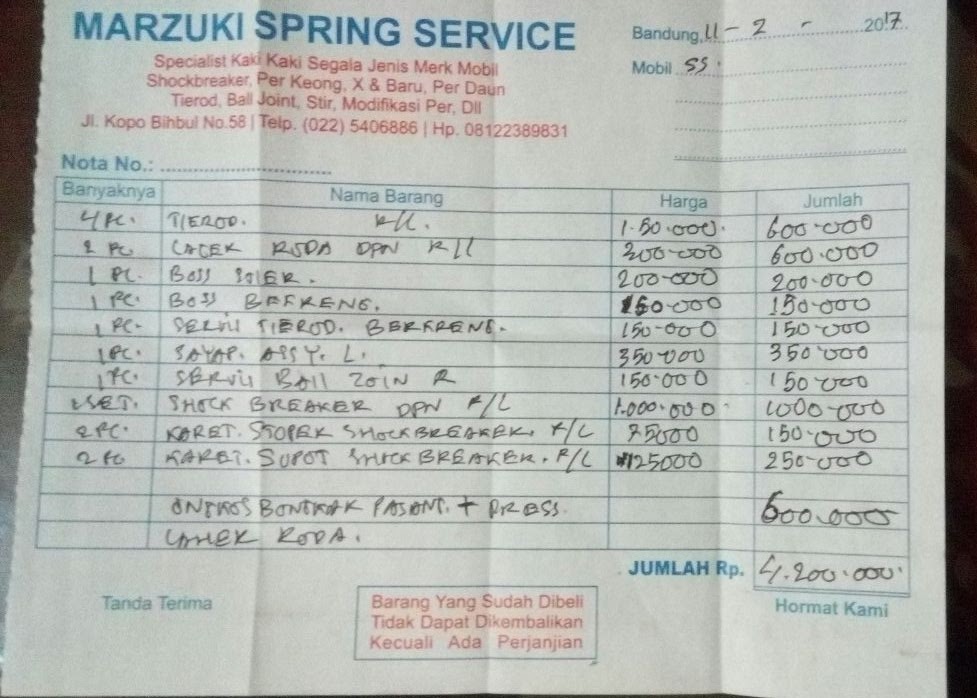 MARZUKI SPRING SERVICE
Specialist Kaki Kaki Segala Jenis Merk Mobil
Shockbreaker, Per Keong, X & Baru, Per Daun
Tierod, Ball Joint, Stir, Modifikasi Per, Dll
Jl. Kopo Bihbul No.58 | Telp. (022) 5406886 | Hp. 08122389831
Bandung, 11 - 2 - 2017
Mobil SS.
Nota No.:
Banyaknya Nama Barang Harga Jumlah
4 PC. TIEROD. R/L. 150.000. 600.000
2 PC RODA DPN R/L 300.000 600.000
1 PC. BOSS 200.000 200.000
1 PC. BOSS 150.000 150.000
1 PC. TIEROD. 150.000 150.000
1 PC. SAYAP. ASSY. L. 350.000 350.000
1 PC. SERVIS BALL JOIN R 150.000 150.000
SET. SHOCK BREAKER DPN R/L 1.000.000 1000.000
2 PC. KARET. STOPER SHOCKBREAKER. R/L 75000 150.000
2 PC KARET. SUPOT SHOCK BREAKER. R/L 125000 250.000
ONGKOS BONGKAR PASANG. + PRESS. 600.000
RODA.
JUMLAH Rp. 4.200.000.
Tanda Terima
Barang Yang Sudah Dibeli
Tidak Dapat Dikembalikan
Kecuali Ada Perjanjian
Hormat Kami